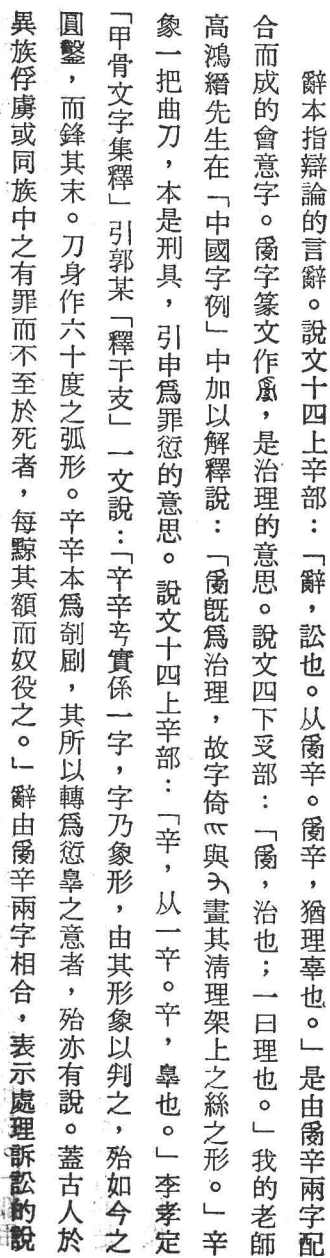 辭本指辯論的言辭。說文十四上辛部：「辭，訟也。从𤔔辛。𤔔辛，猶理辜也。」是由𤔔辛兩字配
合而成的會意字。𤔔字篆文作，是治理的意思。說文四下𠬪部：「𤔔，治也；一曰理也。」我的老師
高鴻縉先生在「中國字例」中加以解釋說：「𤔔既爲治理，故字倚爫與畫其清理架上之絲之形。」辛
象一把曲刀，本是刑具，引申爲罪愆的意思。說文十四上辛部：「辛，从一䇂。䇂，辠也。」李孝定
「甲骨文字集釋」引郭某「釋干支」一文說：「䇂辛䇂實係一字，字乃象形，由其形象以判之，殆如今之
圓鑿，而鋒其末。刀身作六十度之弧形。䇂辛本爲剞劂，其所以轉爲愆辠之意者，殆亦有說。蓋古人於
異族俘虜或同族中之有罪而不至於死者，每黥其額而奴役之。」辭由𤔔辛兩字相合，表示處理訴訟的說